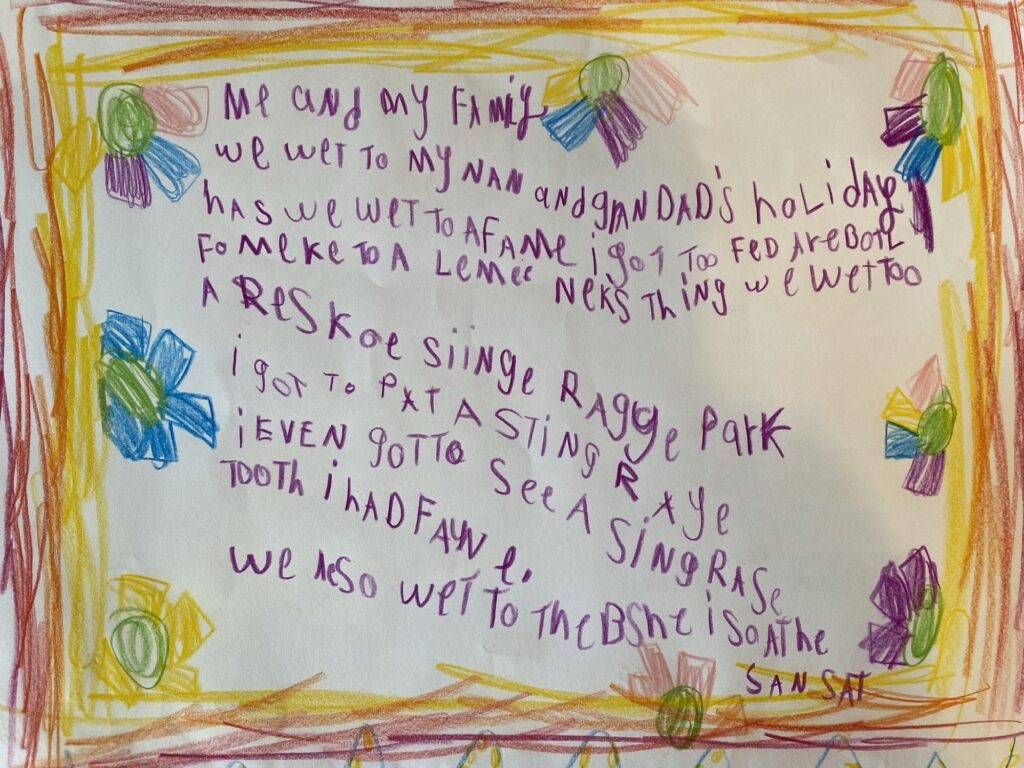 Me and my FAmiy
we weT To My NAN andgANDAD's holiday
hAS we weT To AFAMe i goT Too FeD AreBoTL
FoMeKeToA LeMee NeKS Thing we weTToo
A ReSKoe Siinge RAgge Park
i goT To PATA STing RAye
iEVEN goTTo See A SingRASe
TooTh i hAD FAYNe.
We AlSo weT To TheBShe iSoAThe
SANSAT